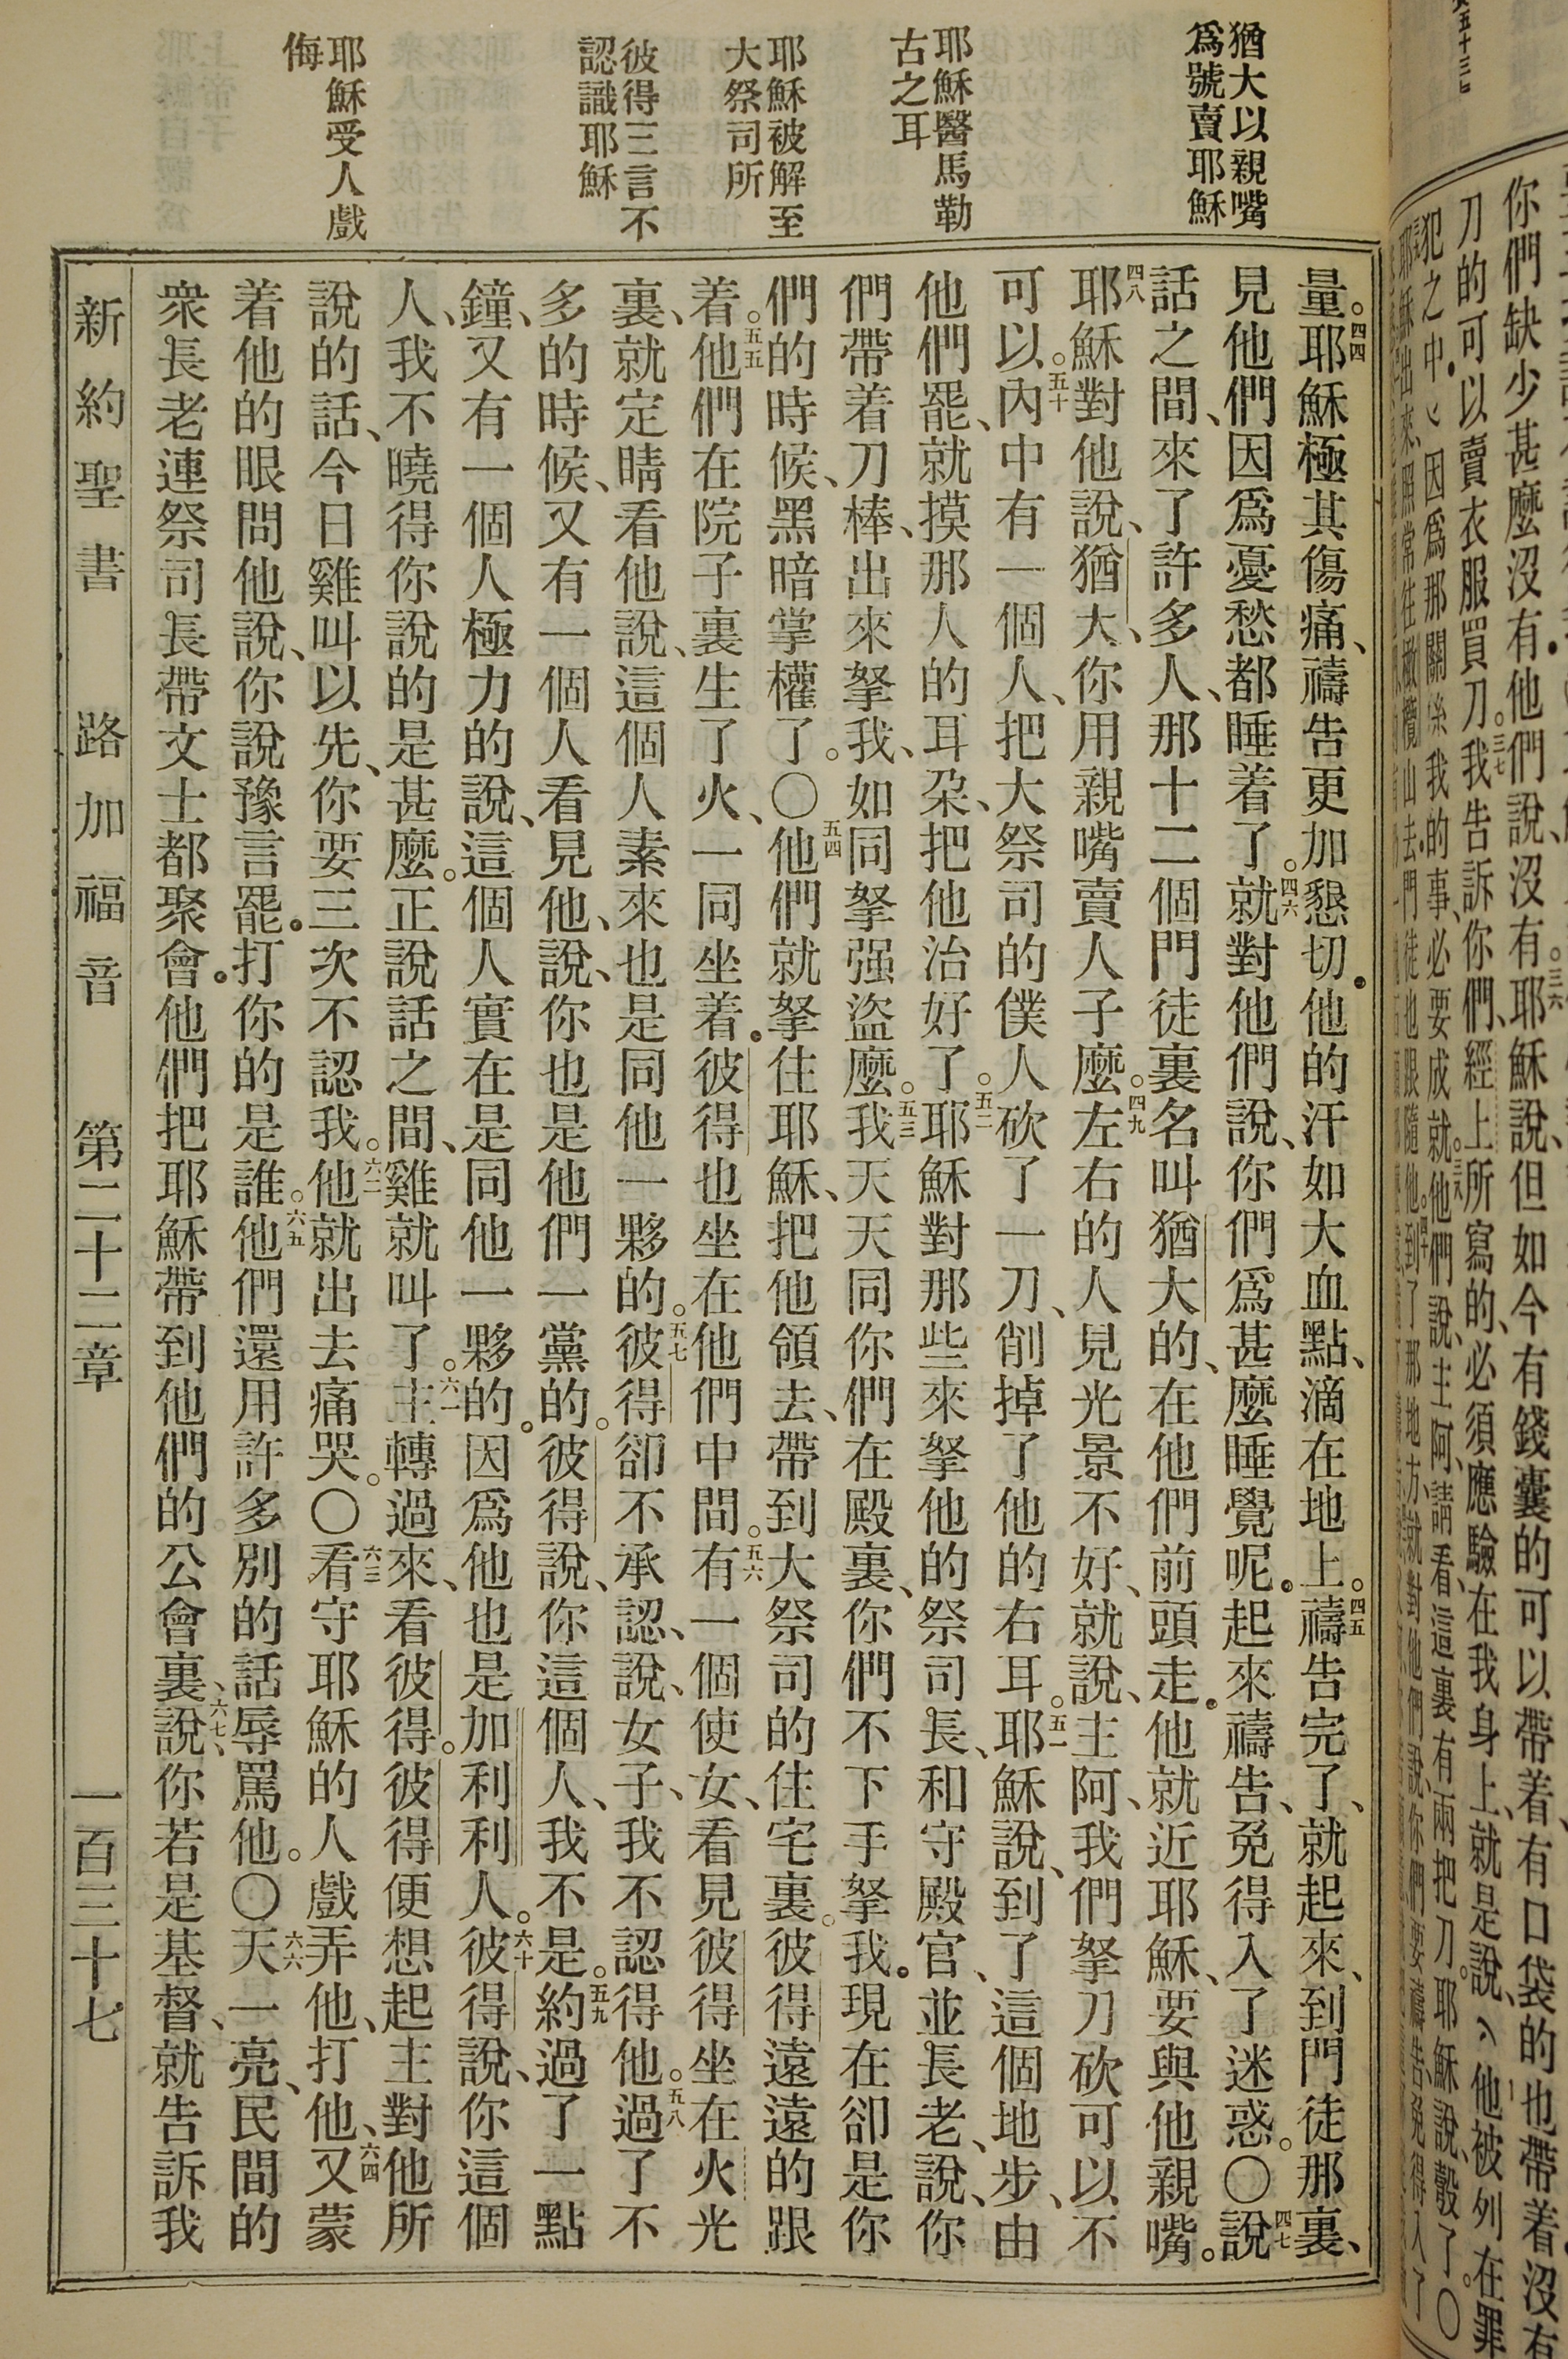 猶大以親嘴
爲號賣耶穌
耶穌醫馬勒
古之耳
耶穌被解至
大祭司所
彼得三言不
認識耶穌
耶穌受人戲
侮
你們缺少甚麼沒有他們說、沒有。三六耶穌說、但如今有錢囊的可以帶着、有口袋的也帶着、沒有
刀的可以賣衣服買刀。三七我告訴你們、經上所寫的、必須應驗在我身上、就是說、他被列在罪
犯之中、因爲那關係我的事、必要成就。三八他們說、主阿、請看、這裏有兩把刀。耶穌說、彀了。〇
量。四四耶穌極其傷痛、禱告更加懇切。他的汗如大血點、滴在地上。四五禱告完了、就起來、到門徒那裏、
見他們因爲憂愁都睡着了。四六就對他們說、你們爲甚麼睡覺呢。起來禱告、免得入了迷惑。〇四七說
話之間、來了許多人、那十二個門徒裏名叫猶大的、在他們前頭走。他就近耶穌、要與他親嘴。
四八耶穌對他說、猶大、你用親嘴賣人子麼。四九左右的人見光景不好、就說、主阿、我們拏刀砍可以不
可以。五十內中有一個人、把大祭司的僕人砍了一刀、削掉了他的右耳。五一耶穌說、到了這個地步、由
他們罷、就摸那人的耳朶、把他治好了。五二耶穌對那些來拏他的祭司長、和守殿官、並長老、說、你
們帶着刀棒、出來拏我、如同拏强盜麼。五三我天天同你們在殿裏、你們不下手拏我。現在卻是你
們的時候、黑暗掌權了。〇五四他們就拏住耶穌、把他領去、帶到大祭司的住宅裏。彼得遠遠的跟
着。五五他們在院子裏生了火、一同坐着。彼得也坐在他們中間。五六有一個使女、看見彼得坐在火光
裏、就定睛看他說、這個人素來也是同他一夥的。五七彼得卻不承認、說、女子、我不認得他。五八過了不
多的時候、又有一個人看見他、說、你也是他們一黨的。彼得說、你這個人、我不是。五九約過了一點
鐘、又有一個人極力的說、這個人實在是同他一夥的。因爲他也是加利利人。六十彼得說、你這個
人、我不曉得你說的是甚麼。正說話之間、雞就叫了。六一主轉過來、看彼得。彼得便想起主對他所
說的話、今日雞叫以先、你要三次不認我。六二他就出去痛哭。〇六三看守耶穌的人戲弄他、打他、六四又蒙
着他的眼問他說、你說豫言罷。打你的是誰。六五他們還用許多別的話辱罵他。〇六六天一亮、民間的
衆長老連祭司長帶文士都聚會。他們把耶穌帶到他們的公會裏、六七說、你若是基督、就告訴我
新約聖書 路加福音 第二十二章 一百三十七